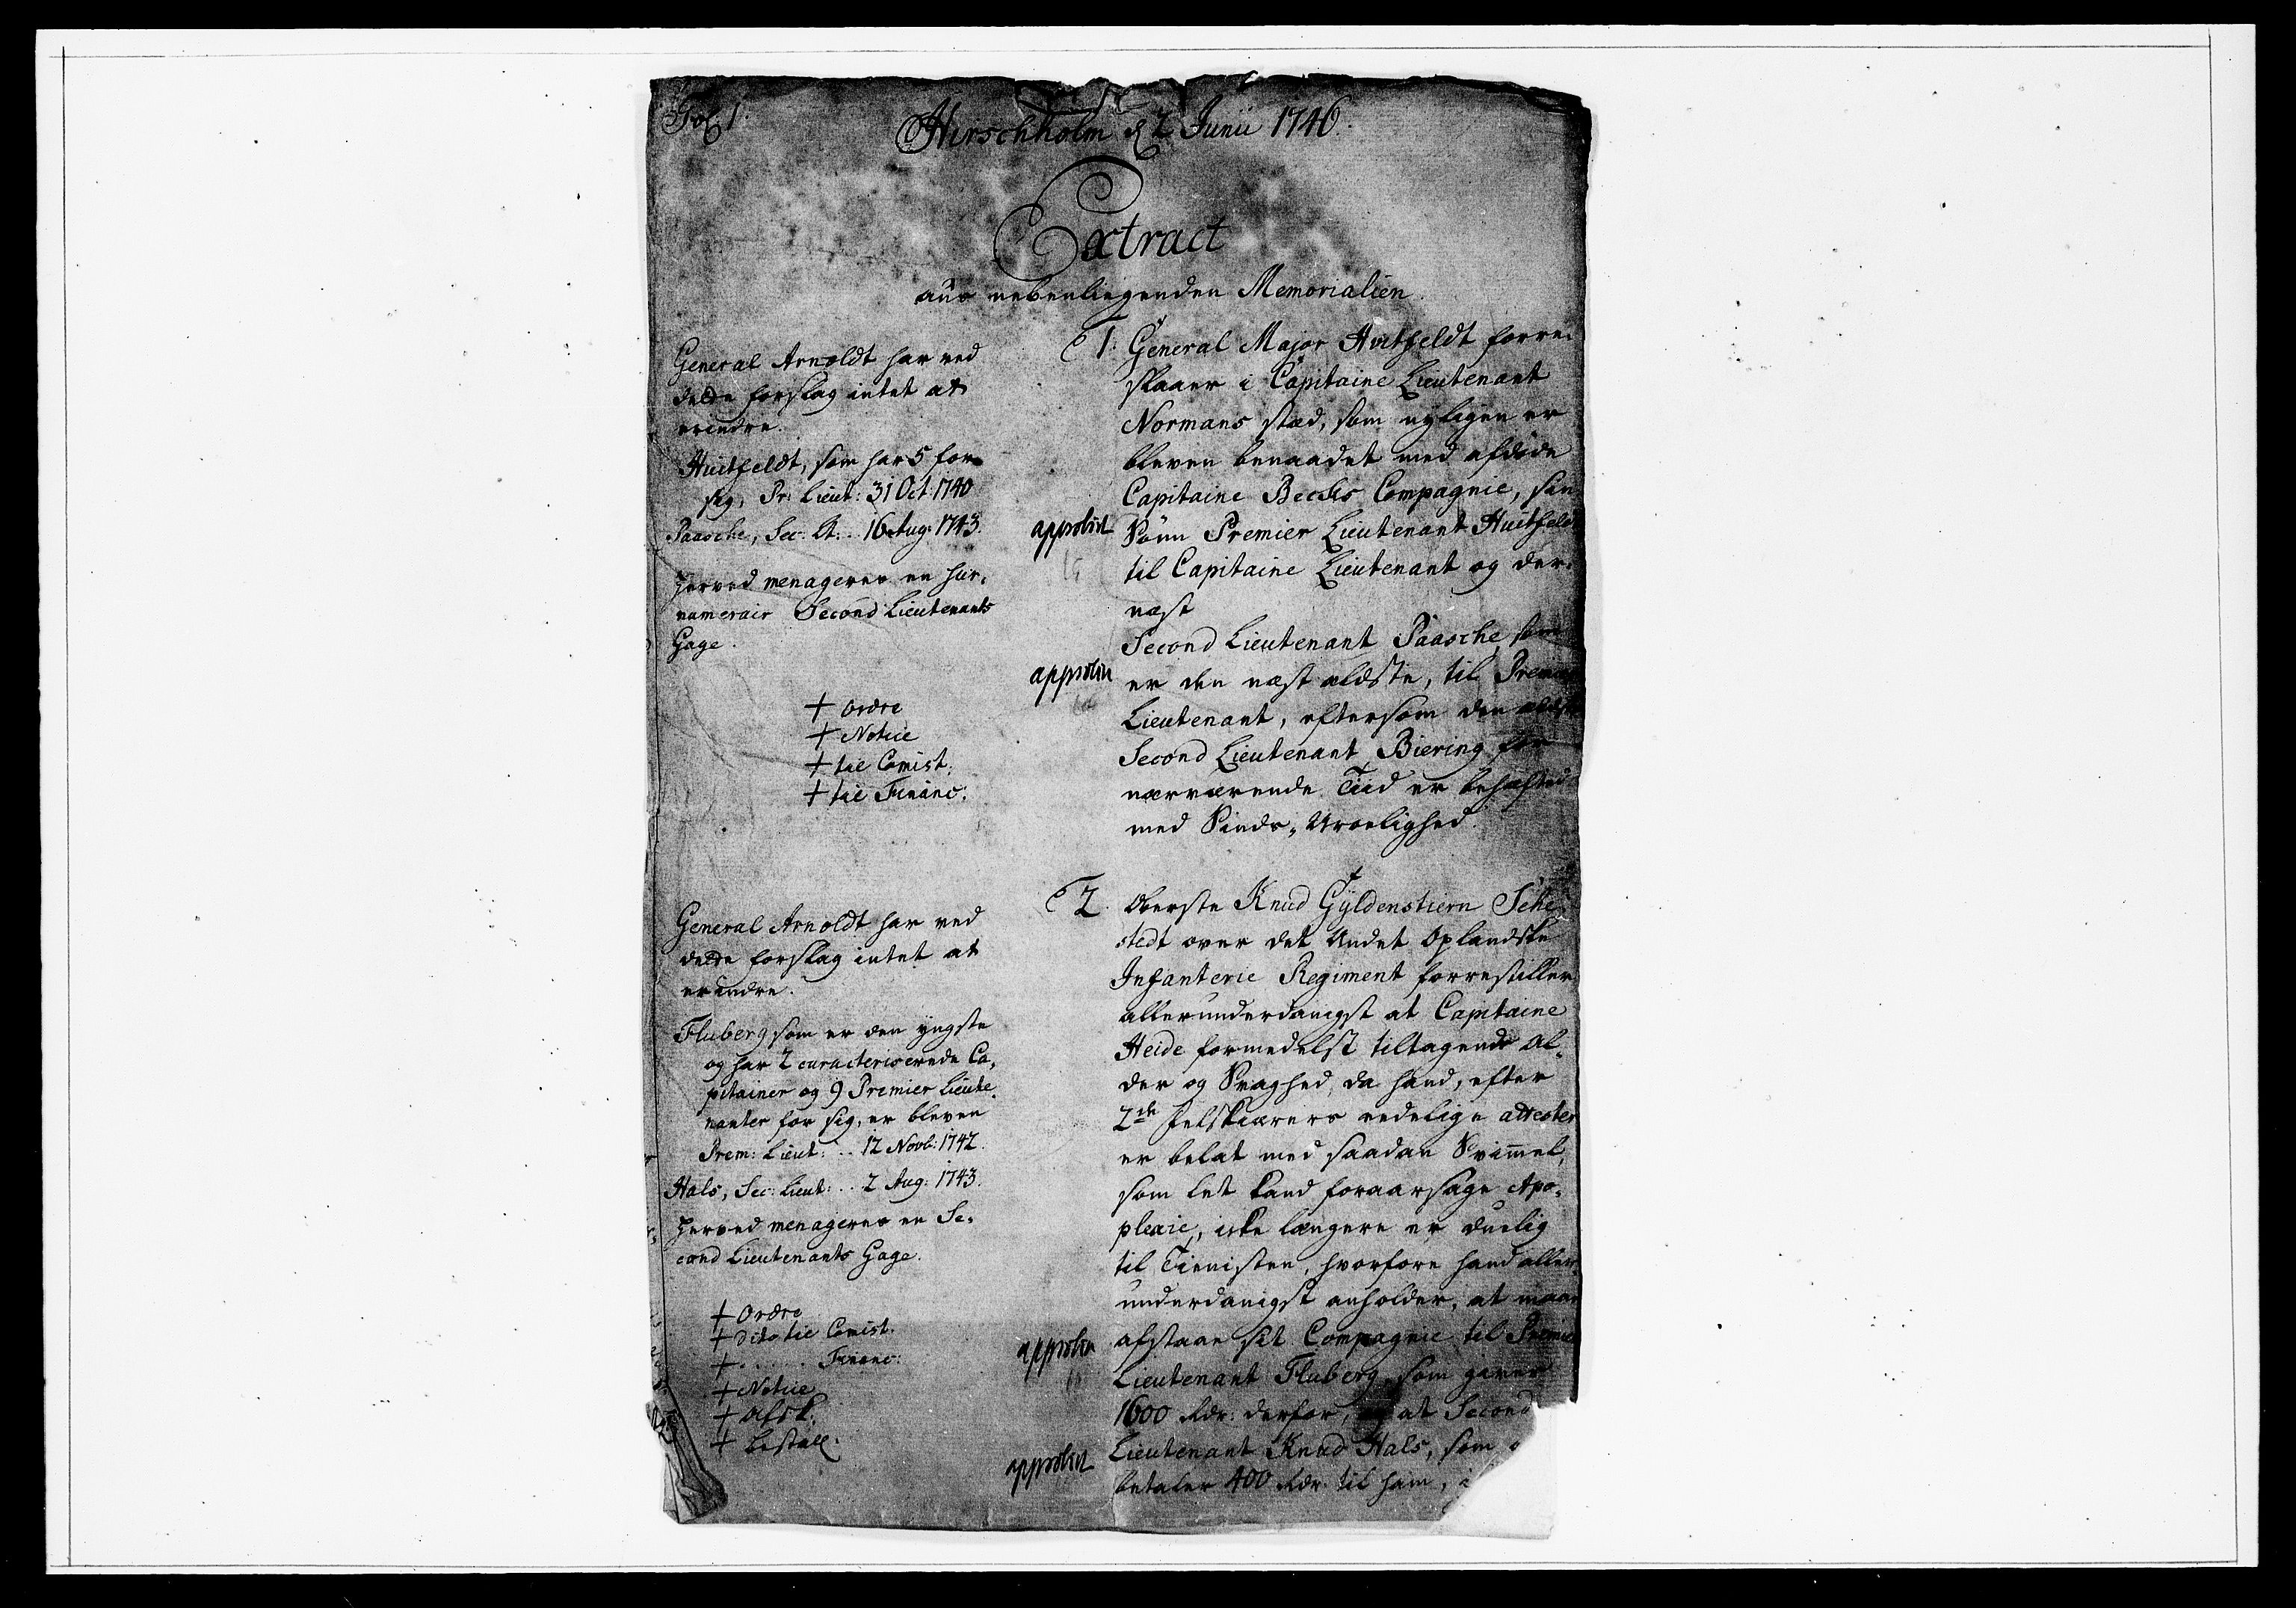 Fol. 1.
Hirschholm d 2 Junii 1746.
Extract
aus nebenliegenden Memorialien.
General Arnoldt har ved
dette forslag intet at
erindre.
Huitfeldt, som har 5 for
sig, Pr: Lieut: 31 Oct: 1740
Paasche, Sec: Lt: .. 16 Aug: 1743.
herved menageres en Sur,
numerair Second Lieutenants
Gage.
+ Ordre
+ Notice
+ til Comist:
+ til Financ:
approbirt
approbirt
1. General Major Huitfeldt forre,
slaaer i Capitaine Lieutenant
Normans stæd, som nyligen er
bleven benaadet med afdøde
Capitaine Becks Compagnie, sin
Sønn Premier Lieutenant Huitfeldt
til Capitaine Lieutenant og der,
næst
Second Lieutenant Paasche, som
er den næst ældste, til Premier
Lieutenant, eftersom den ældste
Second Lieutenant Biering for
nærværende Tiid er behæftet
med Sinds-Uroelighed.
General Arnoldt har ved
dette forslag intet at
erindre.
Fluberg som er den yngste
og har 2 caracteriserede Ca,
pitainer og 9 Premier Lieute,
nanter for sig, er bleven
Prem: Lieut: .. 12 Novb: 1742.
Hals, Sec: Lieut: .. 2 Aug: 1743.
herved menageres en Se,
cond Lieutenants Gage.
+ Ordre
+ Dito til Comist.
+ ...... Financ:
+ Notice
+ Afsk:
+ Bestall.
approbirt
approbirt
2. Oberste Knud Gyldenstiern Sehe,
stedt over det Andet Oplandske
Infanterie Regiment forrestiller
allerunderdanigst at Capitaine
Heide formedelst tiltagende Al,
der og Svaghed, da hand, efter
2de Feltskiærers eedelige attester
er belat med saadan Svimmel,
som let kand foraarsage Apo,
plexie, icke længere er duelig
til Tienisten, hvorfore hand aller,
underdanigst anholder, at maae
afstaae sit Compagnie til Premier
Lieutenant Fluberg, som giver
1600 Rdr: derfor, og at Second
Lieutenant Knud Hals, som
betaler 400 Rdr til ham, i